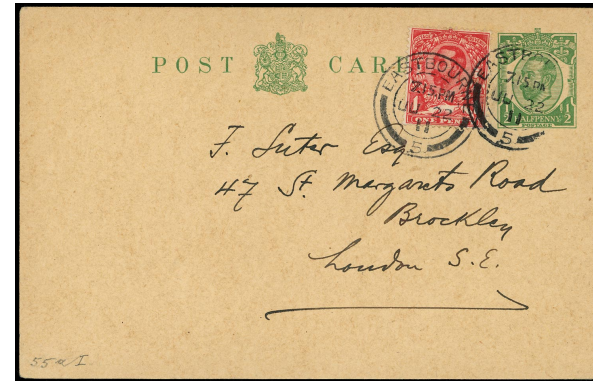 POST CARD
EASTBOURNE
7.15 PM
JU 22
11
5
EASTBOURNE
7.15 PM
JU 22
11
5
HALFPENNY
F. Suter Esq
47 St. Margarets Road
Brockley
London S.E.
55 a I